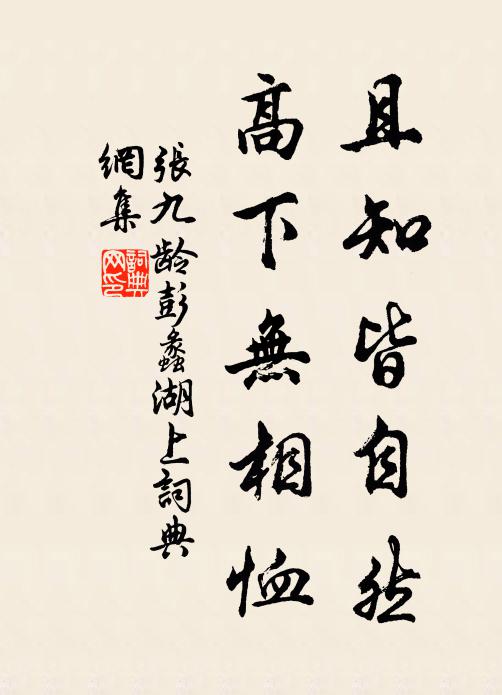 且知皆自然
高下無相恤
張九龄彭蠡湖上詞典
網集
詞典
网印